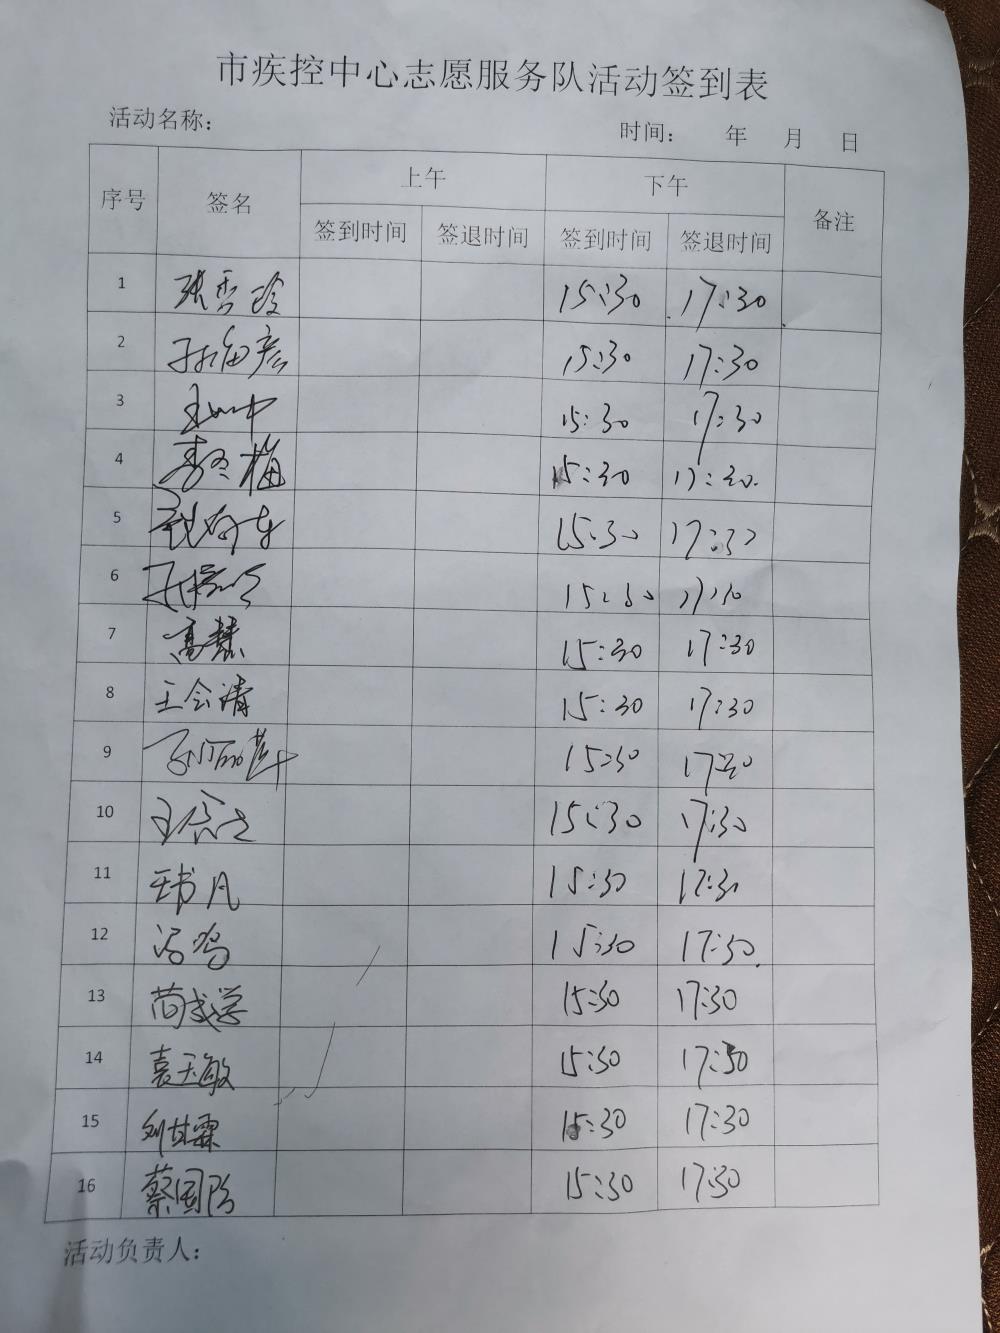 市疾控中心志愿服务队活动签到表
活动名称: 时间: 年 月 日
序号 签名 上午 下午 备注
签到时间 签退时间 签到时间 签退时间
1 张雪玲 15:30 17:30
2 15:30 17:30
3 15:30 17:30
4 李冬梅 15:30 17:30
5 15:30 17:30
6 15:30 17:30
7 高慧 15:30 17:30
8 王会清 15:30 17:30
9 15:30 17:30
10 15:30 17:30
11 王书凡 15:30 17:30
12 冯鸣 15:30 17:30
13 15:30 17:30
14 袁玉敏 15:30 17:30
15 刘甘霖 15:30 17:30
16 蔡国防 15:30 17:30
活动负责人: